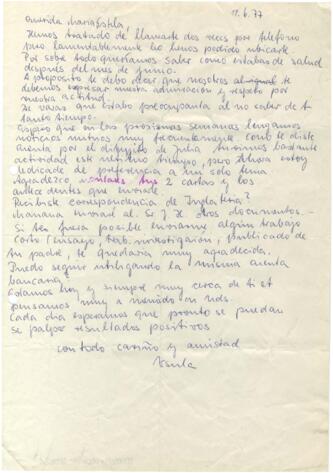 11.6.77
Querida María Estela
Hemos tratado de llamarte dos veces por teléfono
pero lamentablemente no hemos podido ubicarte
Por sobre todo queríamos saber como estabas de salud
después del mes de junio.
A propósito te debo decir que nosotros
debemos expresar nuestra admiración y respeto por
vuestra actitud.
Ya veras que estaba preocupanta al no saber de ti
tanto tiempo.
Espero que en las proximas semanas tengamos
noticias mutuas muy frecuentemente como te diste
cuenta por el dibujito de Julia tuvimos bastante
actividad este ultimo tiempo, pero ahora estoy
dedicada de preferencia a un solo tema
Agradezco tus 2 cartas y los
antecedentes que enviaste.
Recibiste correspondencia de Inglaterra?
Mañana enviaré al Sr J. H. otros documentos.-
Si te fuera posible enviarme algún trabajo
corto (ensayo, trab. investigación, publicado de
tu padre, te quedaría muy agradecida.
Puedo seguir utilizando la misma cuenta
bancaria?
Estamos hoy y siempre muy cerca de ti et
pensamos muy a menudo en uds.
Cada día esperamos que pronto se puedan
se palpar resultados positivos
con todo cariño y amistad